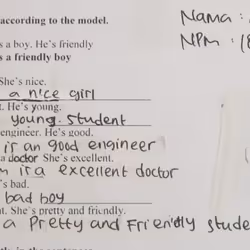 according to the model.
Nama :
NPM : 18
s a boy. He's friendly
s a friendly boy
She's nice.
a nice girl
t. He's young.
young student
engineer. He's good.
is an good engineer
a doctor She's excellent.
is a excellent doctor
's bad.
bad boy
nt. She's pretty and friendly.
a Pretty and Friendly stude